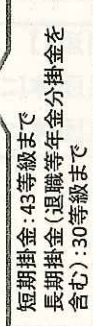 短期掛金:43等級まで
長期掛金(退職等年金分掛金を
含む):30等級まで